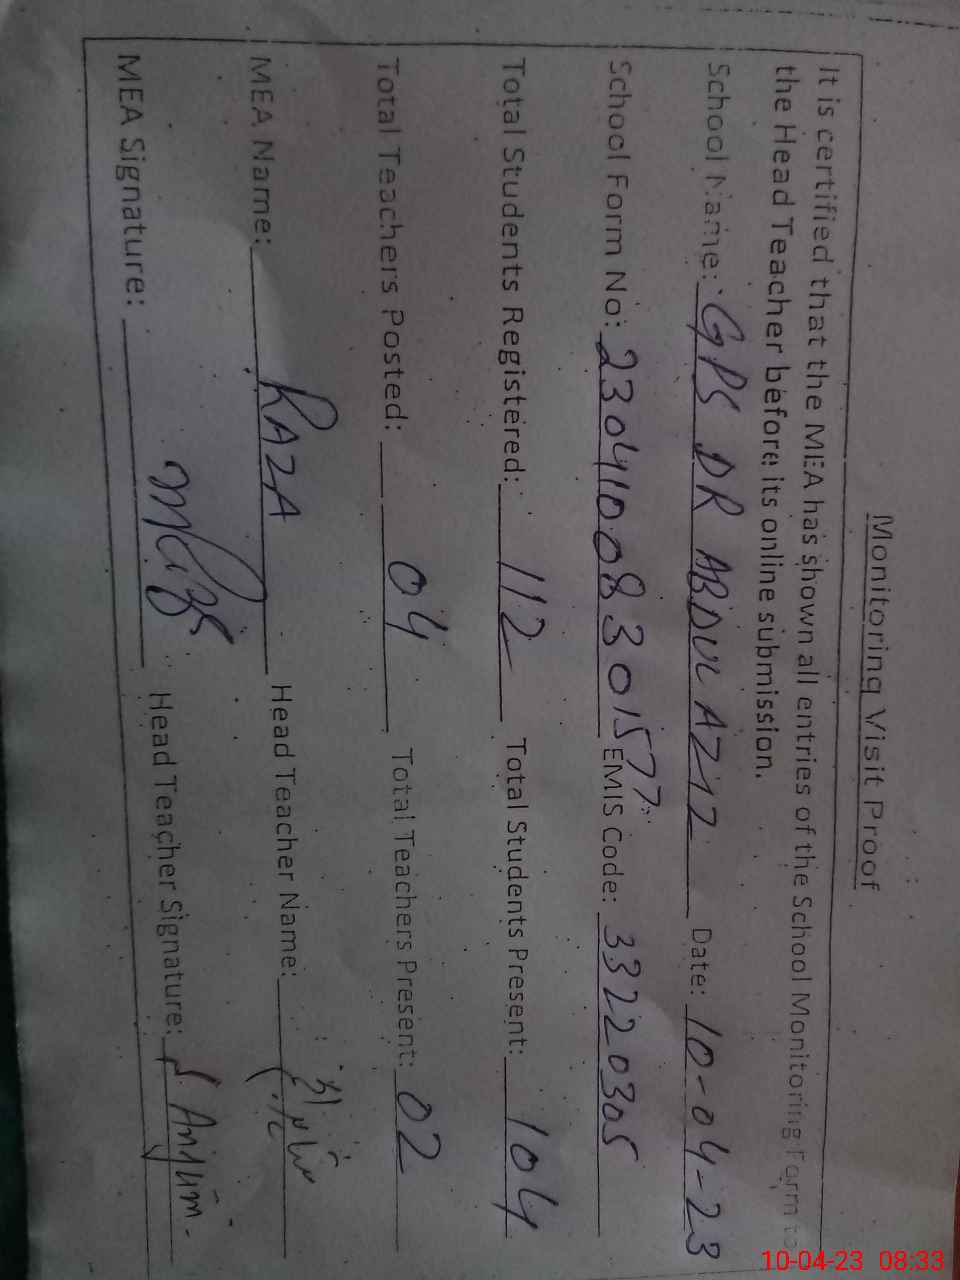 Monitoring Visit Proof
It is certified that the MEA has shown all entries of the School Monitoring Form to
the Head Teacher before its online submission.
School Name: GPS DR ABDUL AZIZ Date: 10-04-23
School Form No: 2304100830157 7 EMIS Code: 33220305
Total Students Registered: 112 Total Students Present: 104
Total Teachers Posted: 04 Total Teachers Present: 02
MEA Name: RAZA Head Teacher Name:
MEA Signature: Head Teacher Signature: Anjum
10-04-23 08:33